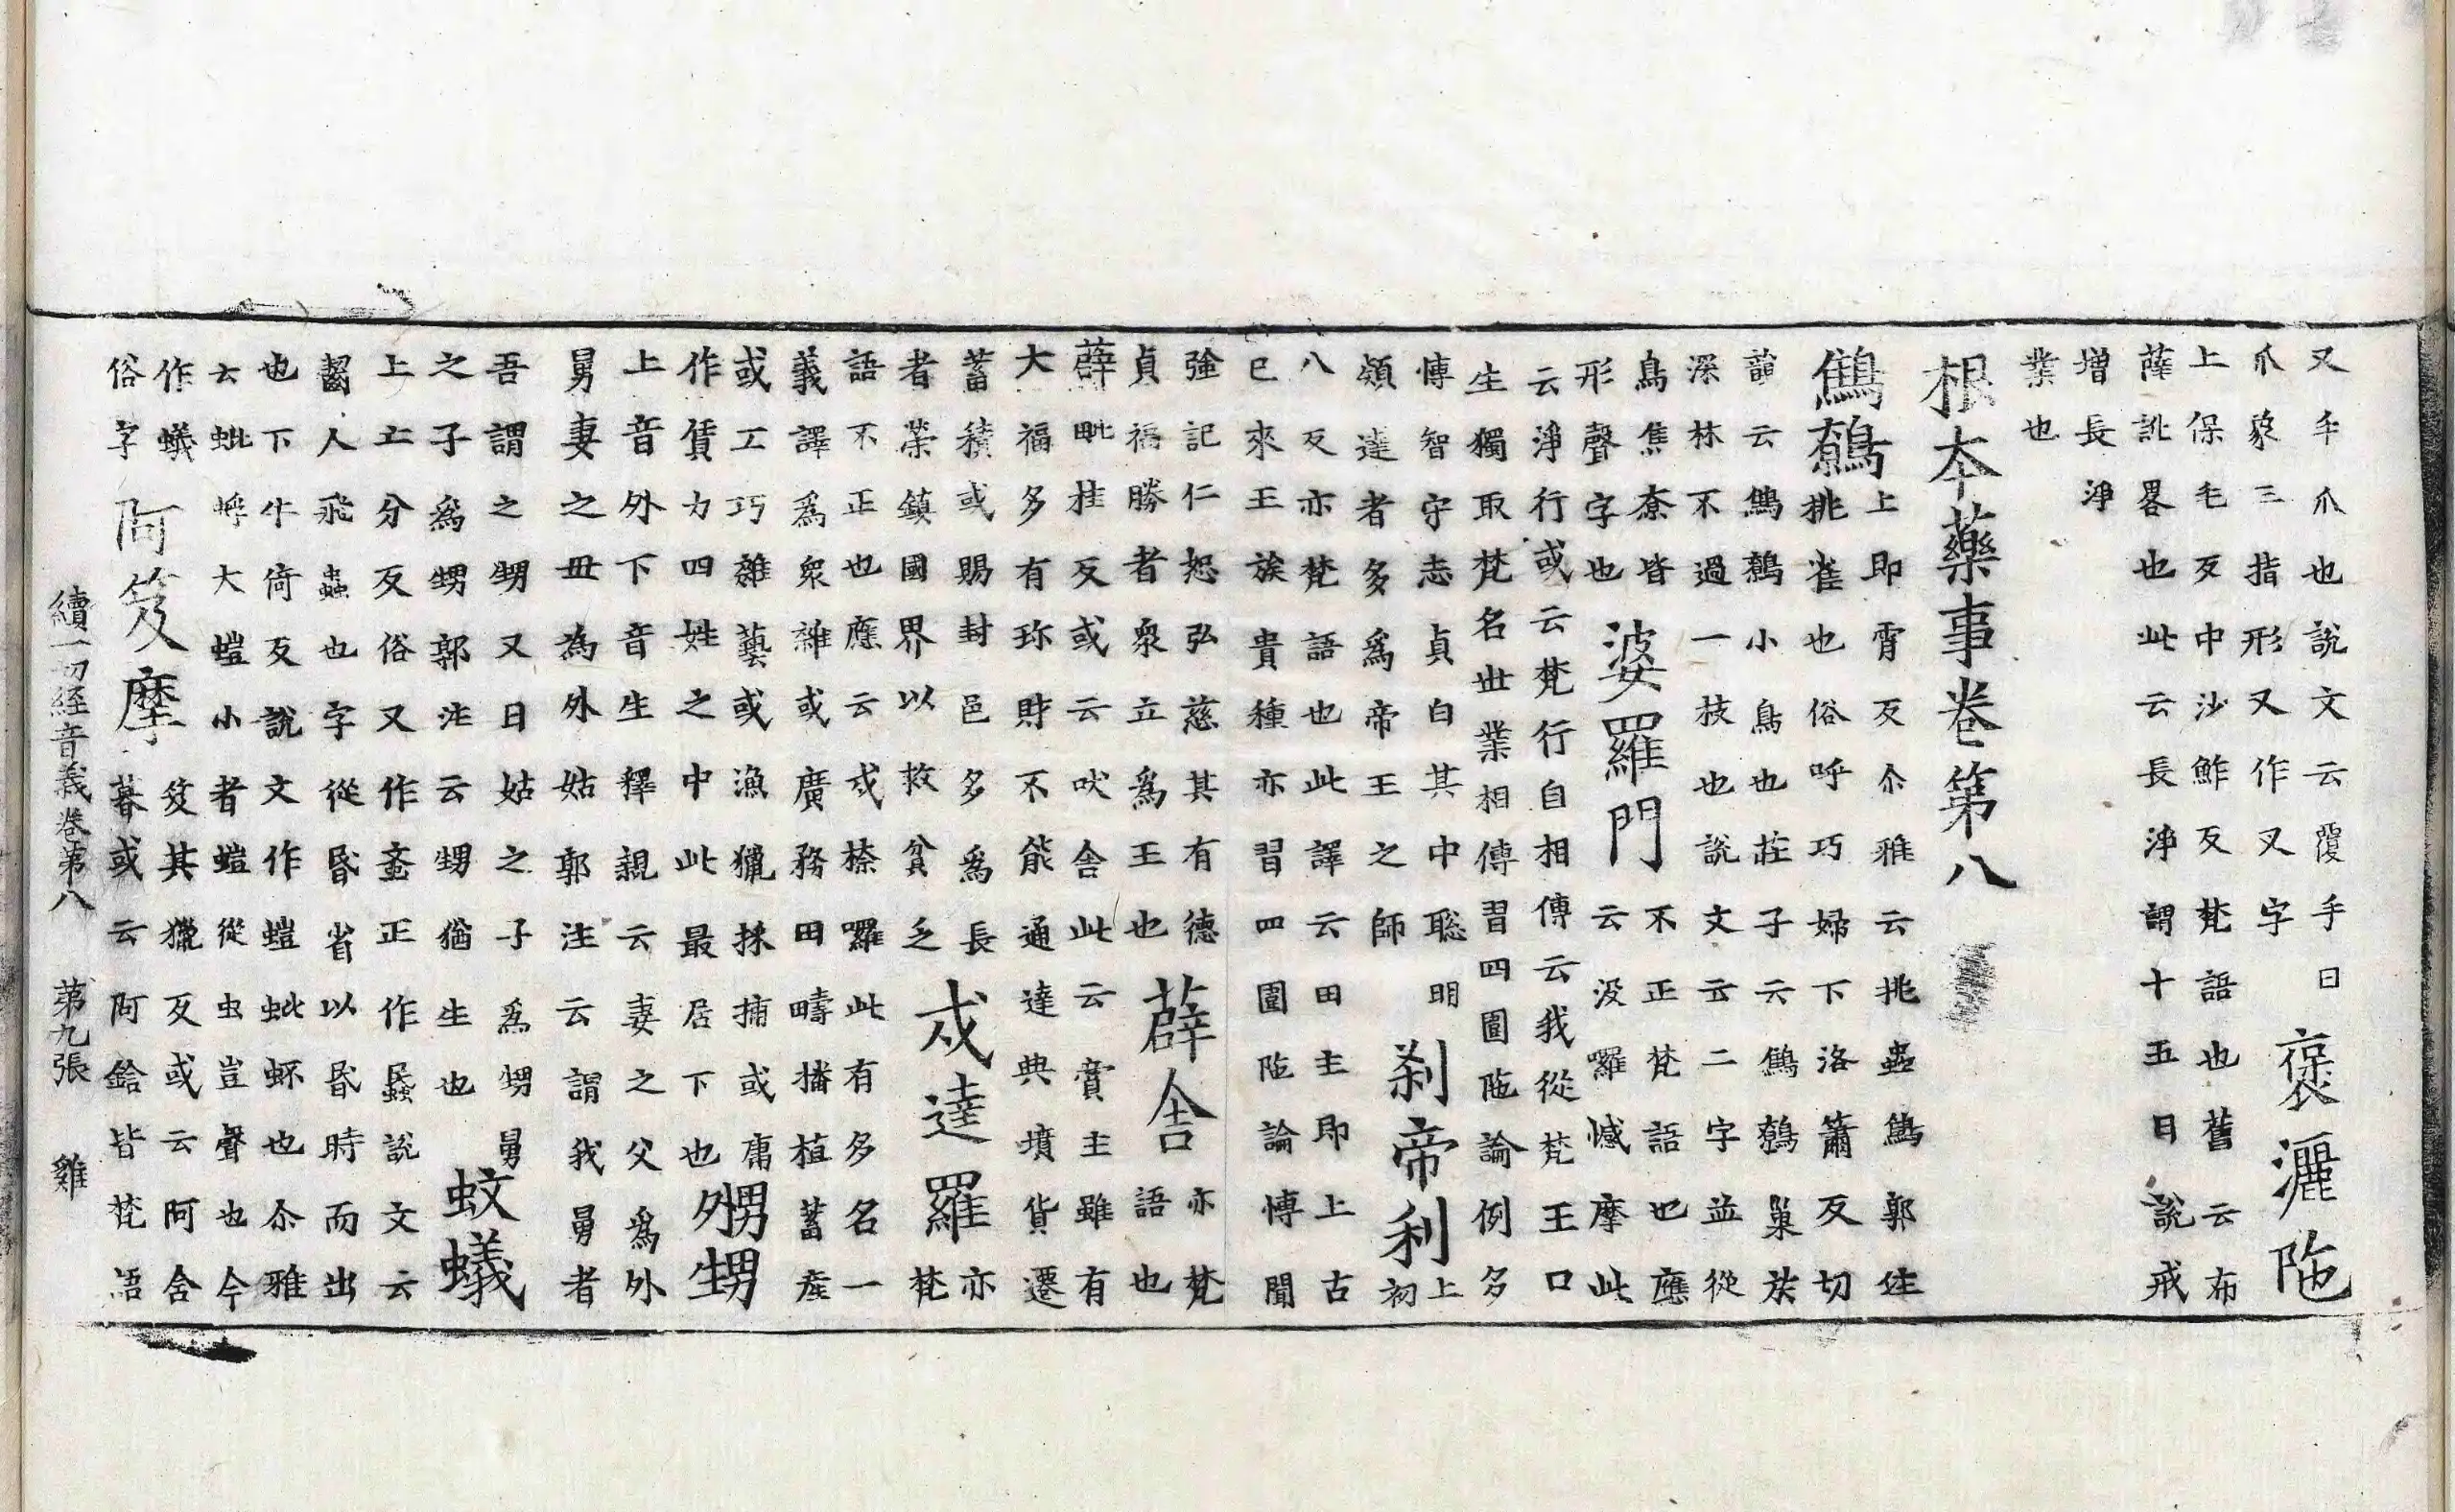 又手爪也說文云覆手曰
爪㒵三指形又作叉字
褒灑陁
上保毛反中沙鮓反梵語也舊云布
薩訛畧也此云長淨謂十五日說戒
增長淨
業也
根本藥事卷第八
鷦鷯
上即霄反尒雅云桃蟲鷦郭注
桃雀也俗呼巧婦下洛蕭反切
韻云鷦鷯小鳥也莊子云鷦鷯巢於
深林不過一枝也說文云二字並從
鳥焦尞皆
形聲字也
婆羅門
不正梵語也應
云沒囉憾摩此
云淨行或云梵行自相傳云我從梵王口
生獨取梵名丗業相傳習四圍陁論例多
博智守志貞白其中聡明
頗達者多爲帝王之師
剎帝利
上
初
八反亦梵語也此譯云田主即上古
已來王族貴種亦習四圍陁論博聞
強記仁恕弘慈其有德
貞福勝者衆立爲王也
薜舍
亦梵
語也
薜毗桂反或云吠舍此云賣主雖有
大福多有珎財不能通達典墳貨遷
蓄積或賜封邑多爲長
者榮鎮國界以救貧乏
戍達羅
亦
梵
語不正也應云戍捺囉此有多名一
義譯爲衆雜或廣務田疇播植蓄產
或工巧雜藝或漁獵採捕或庸
作賃力四姓之中此最居下也
外甥
上音外下音生釋親云妻之父爲外
舅妻之毋為外姑郭注云謂我舅者
吾謂之甥又曰姑之子爲甥舅
之子爲甥郭注云甥猶生也
蚊蟻
上亠分反俗又作䖟正作蟁說文云
齧人飛蟲也字從昬省以昬時而出
也下牛倚反說文作螘蚍蜉也尒雅
云蚍蜉大螘小者螘從虫豈聲也今
作蟻
俗字
阿笈摩
笈其獵反或云阿舍
暮或云阿鋡皆梵語
續一切經音義卷第八 第九張 雞